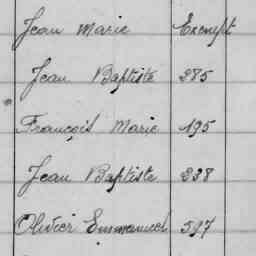 Jean Marie Exempt
Jean Baptiste 285
François Marie 195
Jean Baptiste 238
Olivier Emmanuel 597